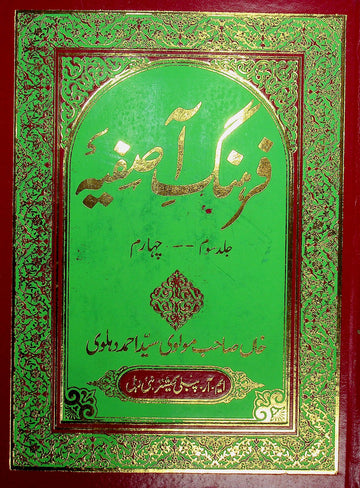 فرہنگِ آصفیہ
جلد سوم -- چہارم
خاں صاحب مولوی سید احمد دہلوی
ایم۔ آر۔ پبلی کیشنز نئی دہلی